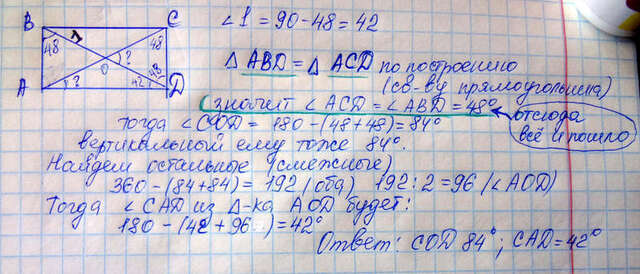 B C
1
48 48
O ?
? 42 48
A D
∠1 = 90-48 = 42
Δ ABD = Δ ACD по построению
(св-ву прямоугольника)
(значит ∠ACD = ∠ABD = 48°
отсюда
всё и пошло
тогда ∠COD = 180-(48+48) = 84°
вертикальный ему тоже 84°.
Найдем остальные (смежные)
360-(84+84) = 192 (оба) 192:2=96 (∠AOD)
Тогда ∠CAD из Δ-ка AOD будет:
180-(42+96) = 42°
Ответ: COD 84°; CAD=42°